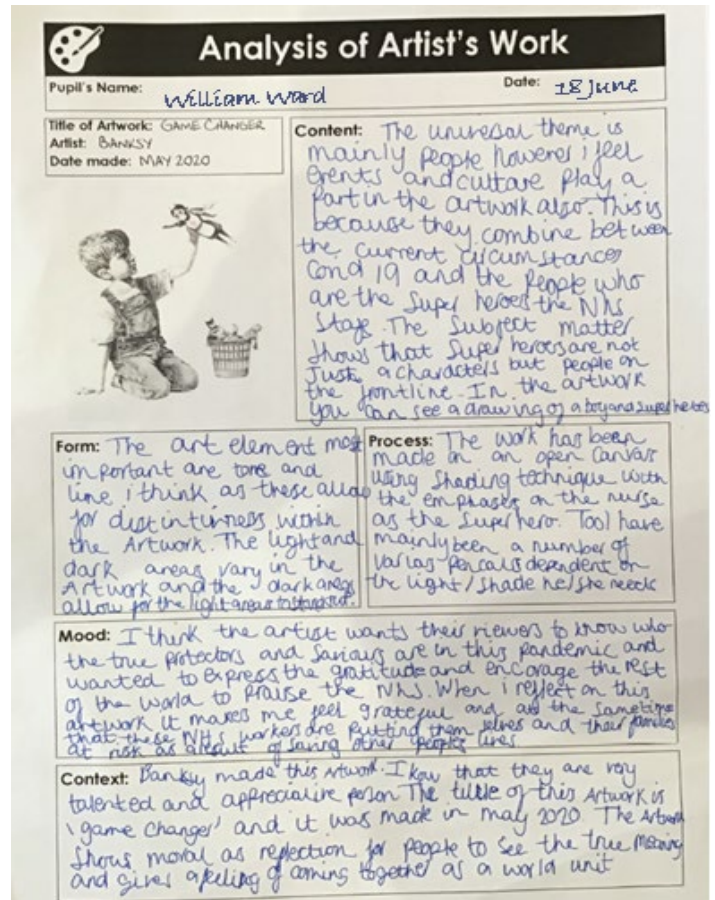 Analysis of Artist's Work
Pupil's Name: William Ward
Date: 18 June
Title of Artwork: GAME CHANGER
Artist: BANKSY
Date made: MAY 2020
Content: The universal theme is
mainly people howeres i feel
events and culture play a
part in the artwork also. This is
because they combine between
the current circumstances
Covid 19 and the people who
are the super heroes the NHS
Staff. The Subject matter
Shows that Super heroes are not
Just a characters but people on
the frontline. In the artwork
you can see a drawing of a boy and super heroes
Form: The art element most
important are tone and
line i think as these allow
for distintinness within
the Artwork. The light and
dark areas vary in the
Artwork and the dark areas
allow for the light areas to standout.
Process: The work has been
made on an open canvas
using shading technique with
the emphases on the nurse
as the superhero. Tool have
mainly been a number of
varias pencils dependent on
the light/shade he/she needs
Mood: I think the artist wants their viewers to know who
the true protectors and Saviours are in this pandemic and
wanted to express the gratitude and encorage the rest
of the world to praise the NHS. When i reflect on this
artwork it makes me feel grateful and at the sametime
that these NHS workers are putting them selves and their families
at risk as a result of saving other peoples lives
Context: Banksy made this Artwork. I kow that they are very
talented and apprecialire person The tittle of this Artwork is
'game changer' and it was made in may 2020. The Artwork
Shows moral as reflection for people to see the true meaning
and gives a feeling of coming together as a world unit